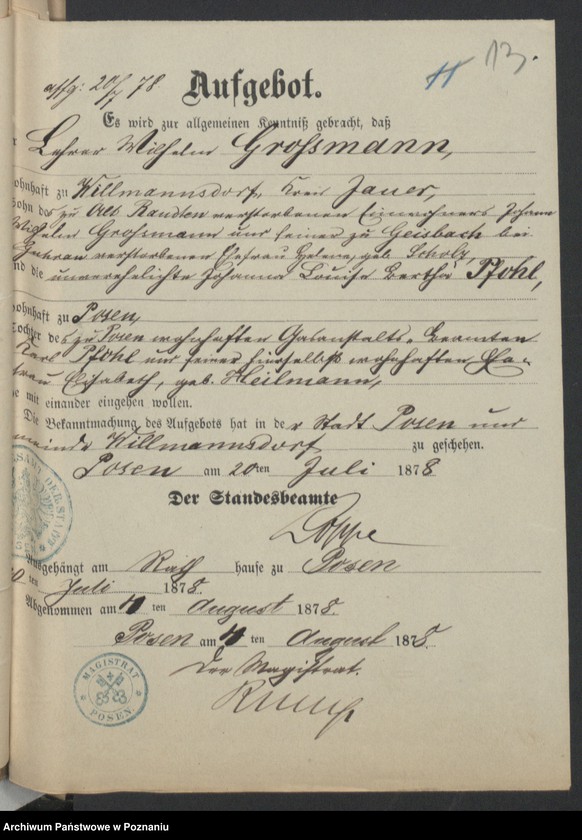 11 13.
affg: 20/7 78
Aufgebot.
Es wird zur allgemeinen Kenntniß gebracht, daß
r Lehrer Wilhelm Grossmann,
ohnhaft zu Willmannsdorf, Kreis Jauer,
Sohn des zu Alt Raudten verstorbenen Einwohners Johann
Wilhelm Grossmann und seiner zu Geisbach bei
Guhrau verstorbenen Ehefrau Helene, geb. Scholz,
nd die unverehelichte Johanna Louise Bertha Pfohl,
ohnhaft zu Posen,
Tochter des zu Posen wohnhaften Gasanstalts-Beamten
Karl Pfohl und seiner hierselbst wohnhaften Ehe-
frau Elisabeth, geb. Heilmann,
e mit einander eingehen wollen.
Die Bekanntmachung des Aufgebots hat in der Stadt Posen und
meinde Willmannsdorf zu geschehen.
Posen am 20ten Juli 1878
Der Standesbeamte
Ausgehängt am Rath hause zu Posen
ten Juli 1878.
Abgenommen am 4 ten August 1878.
Posen am 4 ten August 1878.
Der Magistrat.
MAGISTRAT POSEN
SAMT DER STADT
Archiwum Państwowe w Poznaniu